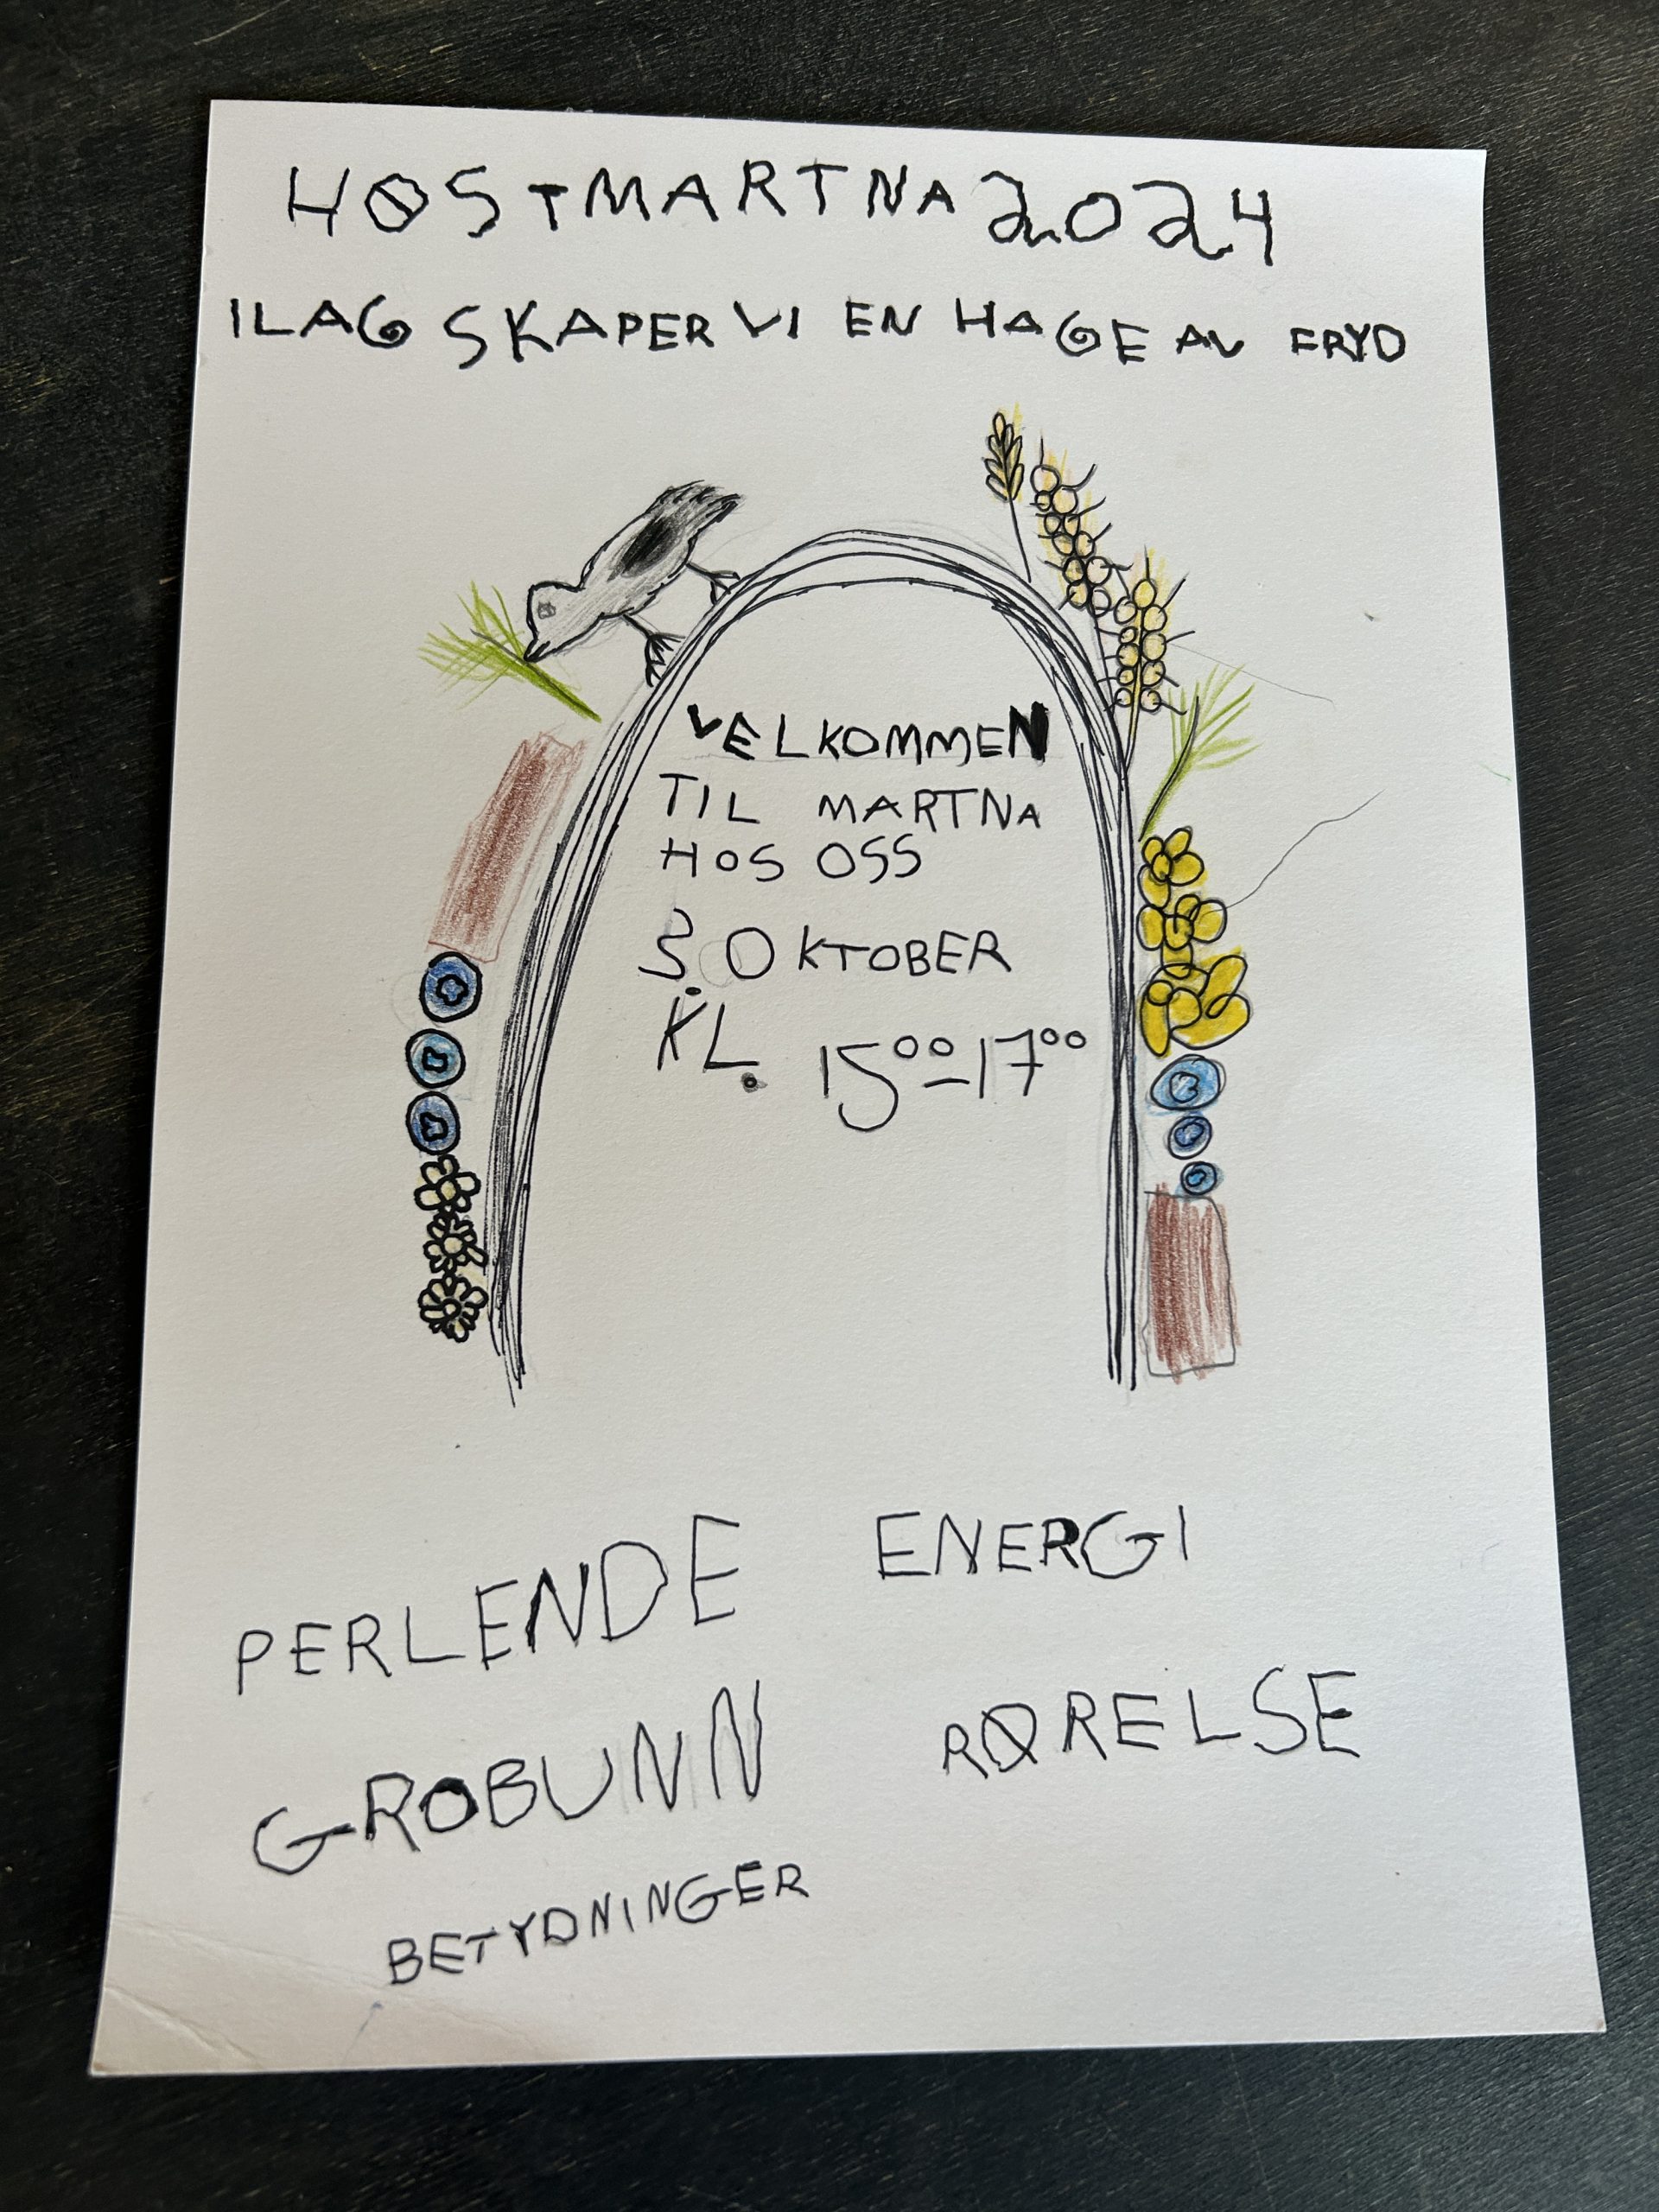 HØSTMARTNA 2024
ILAG SKAPER VI EN HAGE AV FRYD
VELKOMMEN
TIL MARTNA
HOS OSS
3. OKTOBER
KL. 15⁰⁰-17⁰⁰
PERLENDE ENERGI
GROBUNN RØRELSE
BETYDNINGER